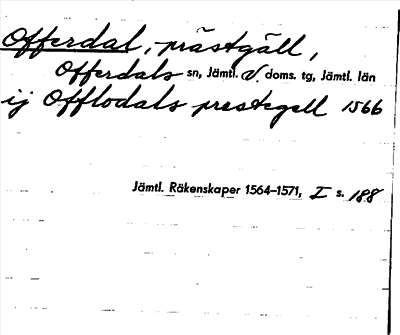 Offerdal, prästgäll,
Offerdals sn, Jämtl. V. doms. tg, Jämtl. län
ij Offlodals prestegell 1566
Jämtl. Räkenskaper 1564–1571, I s. 188